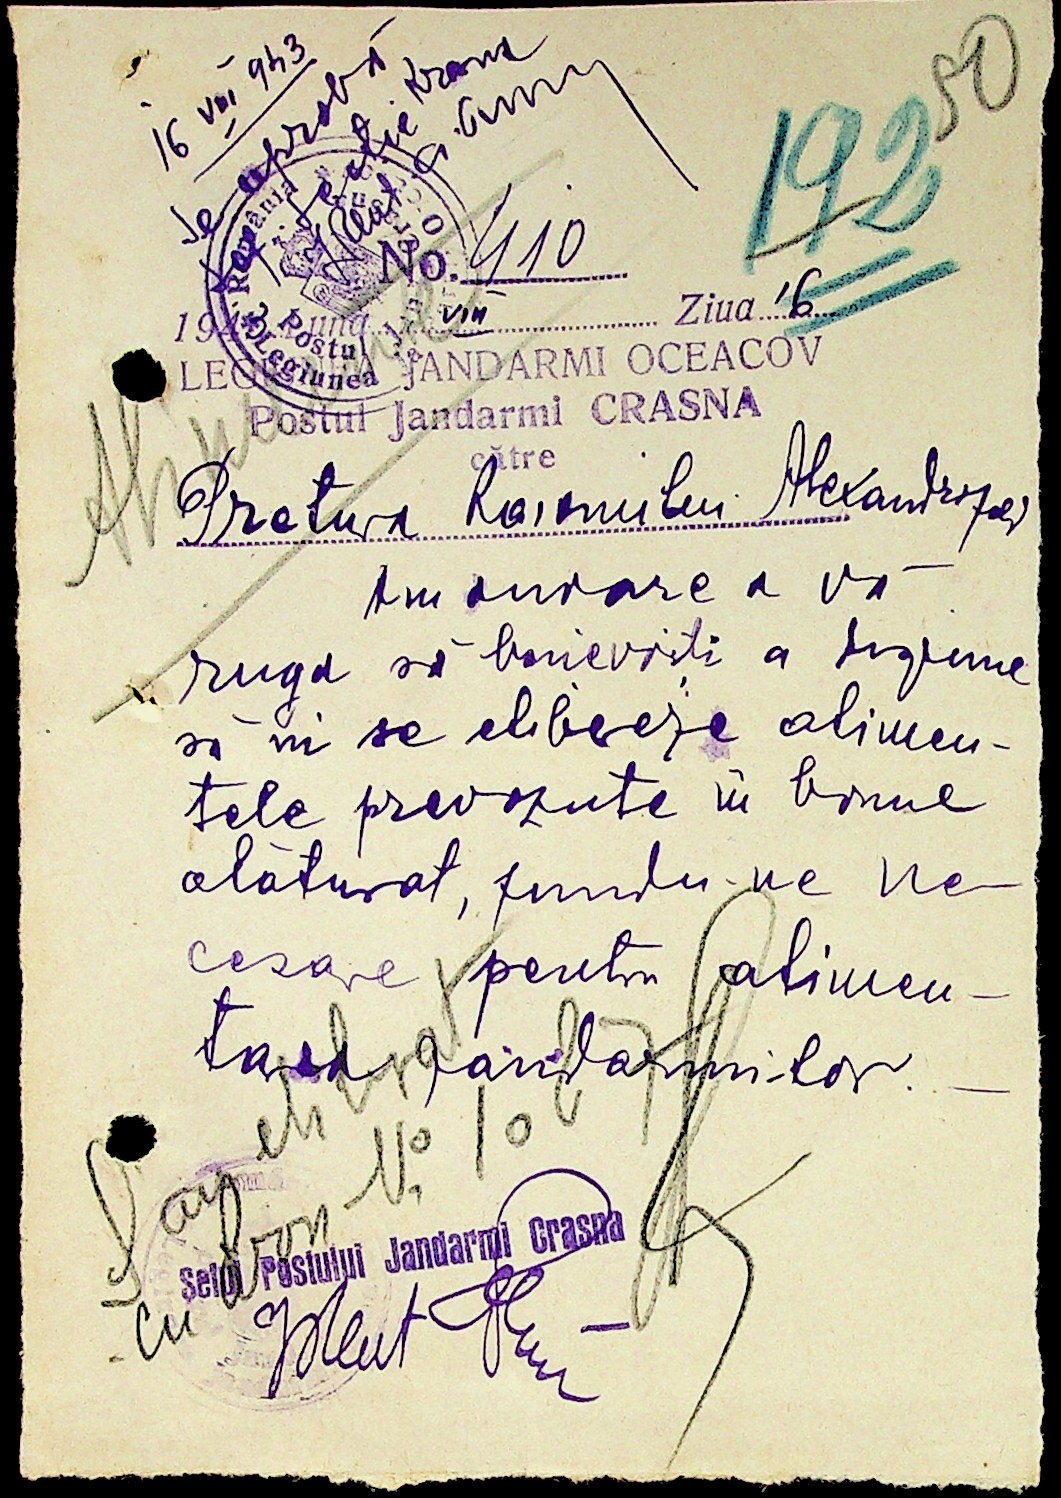 16 VIII 943
Se aprobă
50
192
România
Postul
Legiunea
No. 410
194 Luna VIII Ziua 16
LEGIUNEA JANDARMI OCEACOV
Postul Jandarmi CRASNA
către
Pretura Raionului Alexandrofeld
Am onoare a vă
ruga să binevoiți a dispune
să ni se elibereze alimen-
tele prevăzute în bonul
alăturat, fiindu-ne ne-
cesare pentru alimen-
tarea jandarmilor. —
S'au eliberat
cu Bon No. 10
Șeful Postului Jandarmi Crasna